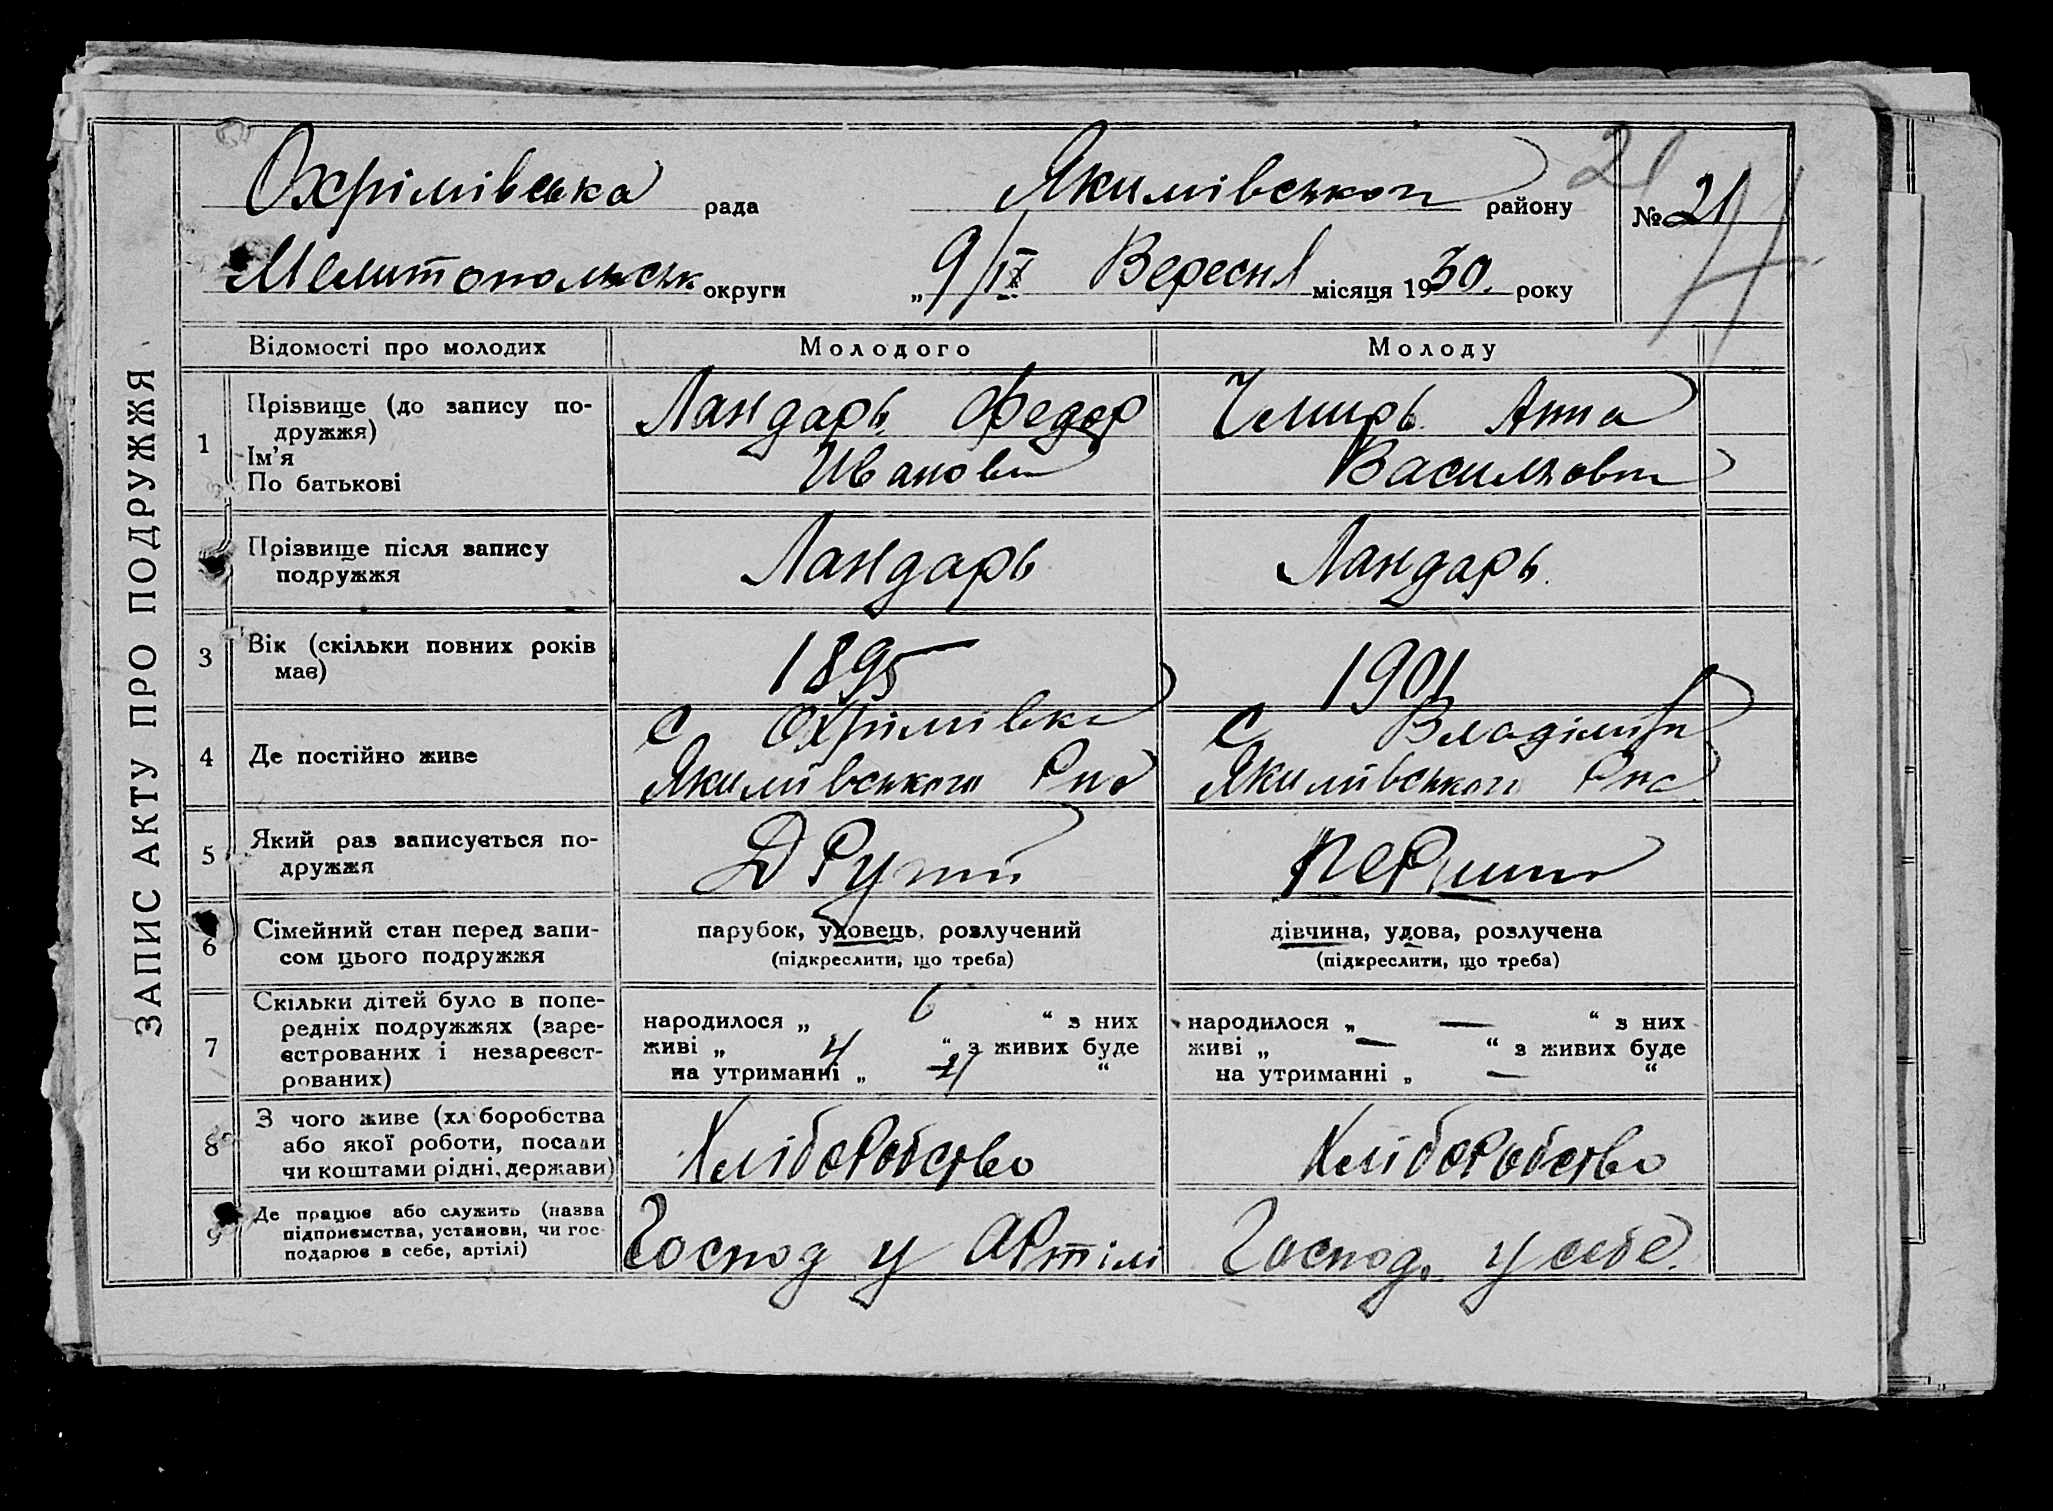 ЗАПИС АКТУ ПРО ПОДРУЖЖЯ
21
Охрімівська рада Якимівського району № 21
Мелитопольськ округи „9/ІХ Вересня місяця 1930. року
Відомості про молодих Молодого Молоду
1 Прізвище (до запису по-
дружжя)
Ім'я
По батькові
Ландарь Федор
Иванови
Чемирь Анна
Васильовн
Прізвище після запису
подружжя
Ландарь
Ландарь.
3 Вік (скільки повних років
має)
1895
1901
4 Де постійно живе
с Охрімівка
Якимівського Рна
с Владіміри
Якимівського Рна
5 Який раз записується по-
дружжя
Другий
Перший
6 Сімейний стан перед запи-
сом цього подружжя
парубок, удовець, розлучений
(підкреслити, що треба)
дівчина, удова, розлучена
(підкреслити, що треба)
7 Скільки дітей було в попе-
редніх подружжях (заре-
єстрованих і незареєст-
рованих)
народилося „ 6 “ з них
живі „ 4 “ з живих буде
на утриманні „ 4 “
народилося „ — “ з них
живі „ — “ з живих буде
на утриманні „ — “
8 З чого живе (хліборобства
або якої роботи, посади
чи коштами рідні, держави)
Хліборобство
Хліборобство
9 Де працює або служить (назва
підприємства, установи, чи гос-
подарює в себе, артілі)
Господ у Артілі
Господ. у себе.